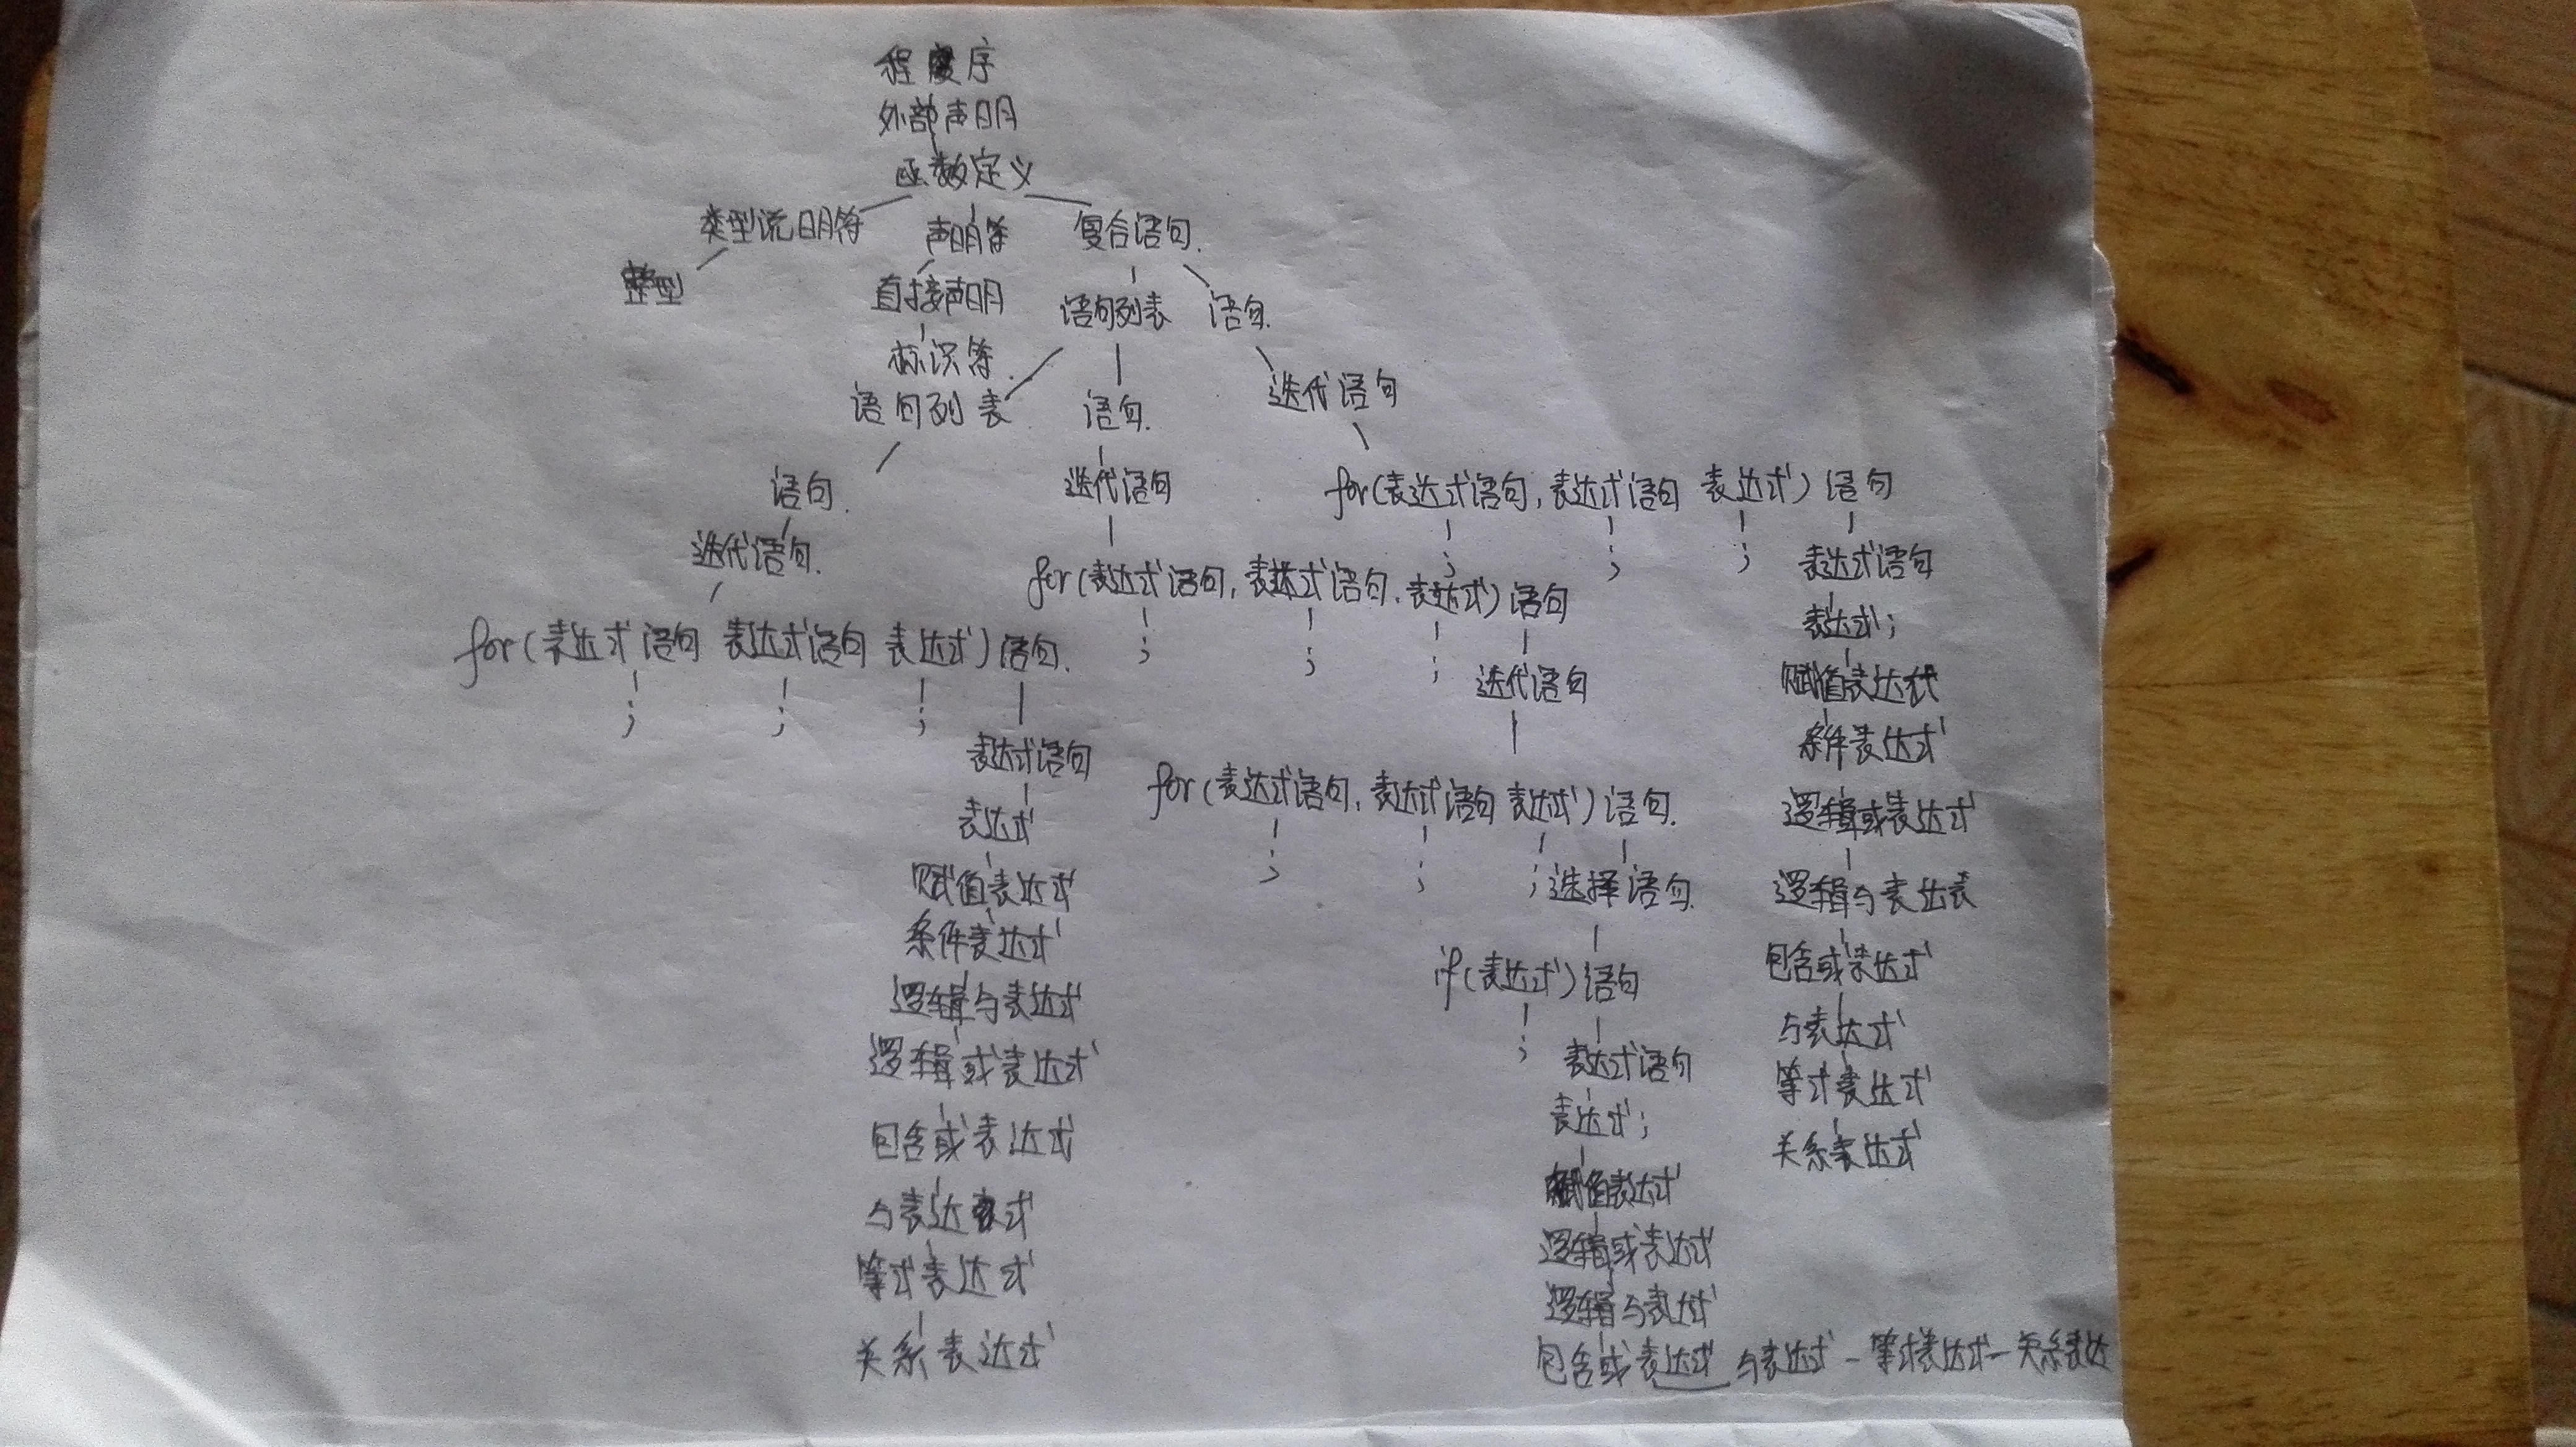 程序
外部声明
函数定义
类型说明符 声明符 复合语句.
整型 直接声明 语句列表 语句.
标识符.
语句列表 语句. 迭代语句
语句. 迭代语句 for(表达式语句, 表达式语句 表达式) 语句
; ; ; 表达式语句
迭代语句. for(表达式语句, 表达式语句, 表达式) 语句
表达式;
for(表达式语句 表达式语句 表达式) 语句.
; ; ; 迭代语句 赋值表达式
; ; ;
表达式语句 条件表达式
for(表达式语句, 表达式语句 表达式) 语句.
表达式 逻辑或表达式
赋值表达式 ; ; ; 选择语句. 逻辑与表达表
条件表达式 包含或表达式
逻辑与表达式 if(表达式) 语句
与表达式
逻辑或表达式 ; 表达式语句
等式表达式
包含或表达式 表达式;
关系表达式
与表达式 赋值表达式
等式表达式 逻辑或表达式
逻辑与表达式
关系表达式 包含或表达式 与表达式 - 等式表达式 - 关系表达